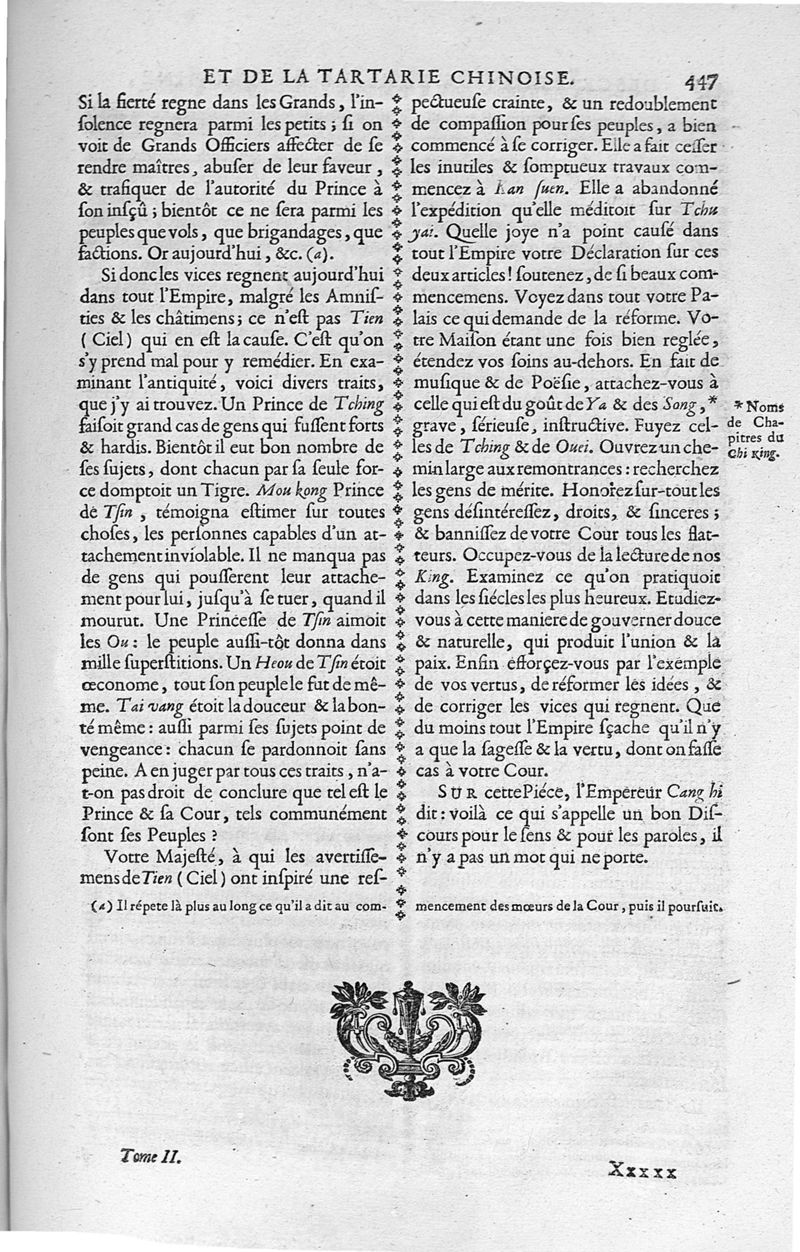 ET DE LA TARTARIE CHINOISE. 447
Si la fierté regne dans les Grands, l'in-
solence regnera parmi les petits ; si on
voit de Grands Officiers affecter de se
rendre maîtres, abuser de leur faveur,
& trafiquer de l'autorité du Prince à
son insçû ; bientôt ce ne sera parmi les
peuples que vols, que brigandages, que
factions. Or aujourd'hui, &c. (a).
Si donc les vices regnent aujourd'hui
dans tout l'Empire, malgré les Amnis-
ties & les châtimens ; ce n'est pas Tien
( Ciel ) qui en est la cause. C'est qu'on
s'y prend mal pour y remédier. En exa-
minant l'antiquité, voici divers traits,
que j'y ai trouvez. Un Prince de Tching
faisoit grand cas de gens qui fussent forts
& hardis. Bientôt il eut bon nombre de
ses sujets, dont chacun par sa seule for-
ce domptoit un Tigre. Mou kong Prince
de Tsin , témoigna estimer sur toutes
choses, les personnes capables d'un at-
tachement inviolable. Il ne manqua pas
de gens qui pousserent leur attache-
ment pour lui, jusqu'à se tuer, quand il
mourut. Une Princesse de Tsin aimoit
les Ou : le peuple aussi-tôt donna dans
mille superstitions. Un Heou de Tsin étoit
œconome, tout son peuple le fut de mê-
me. Tai vang étoit la douceur & la bon-
té même : aussi parmi ses sujets point de
vengeance : chacun se pardonnoit sans
peine. A en juger par tous ces traits, n'a-
t-on pas droit de conclure que tel est le
Prince & sa Cour, tels communément
sont ses Peuples ?
Votre Majesté, à qui les avertisse-
mens de Tien ( Ciel ) ont inspiré une res-
pectueuse crainte, & un redoublement
de compassion pour ses peuples, a bien
commencé à se corriger. Elle a fait cesser
les inutiles & somptueux travaux com-
mencez à Kan suen. Elle a abandonné
l'expédition qu'elle méditoit sur Tchu
yai. Quelle joye n'a point causé dans
tout l'Empire votre Déclaration sur ces
deux articles ! soutenez, de si beaux com-
mencemens. Voyez dans tout votre Pa-
lais ce qui demande de la réforme. Vo-
tre Maison étant une fois bien reglée,
étendez vos soins au-dehors. En fait de
musique & de Poësie, attachez-vous à
celle qui est du goût de Ya & des Song,*
grave, sérieuse, instructive. Fuyez cel-
les de Tching & de Ouei. Ouvrez un che-
min large aux remontrances : recherchez
les gens de mérite. Honorez sur-tout les
gens désintéressez, droits, & sinceres ;
& bannissez de votre Cour tous les flat-
teurs. Occupez-vous de la lecture de nos
King. Examinez ce qu'on pratiquoit
dans les siécles les plus heureux. Etudiez-
vous à cette maniere de gouverner douce
& naturelle, qui produit l'union & la
paix. Enfin efforçez-vous par l'exemple
de vos vertus, de réformer les idées , &
de corriger les vices qui regnent. Que
du moins tout l'Empire sçache qu'il n'y
a que la sagesse & la vertu, dont on fasse
cas à votre Cour.
SUR cette Piéce, l'Empereur Cang hi
dit : voilà ce qui s'appelle un bon Dis-
cours pour le sens & pour les paroles, il
n'y a pas un mot qui ne porte.
* Noms
de Cha-
pitres du
Chi King.
(a) Il répete là plus au long ce qu'il a dit au com-
mencement des mœurs de la Cour, puis il poursuit.
Tome II.
Xxxxx